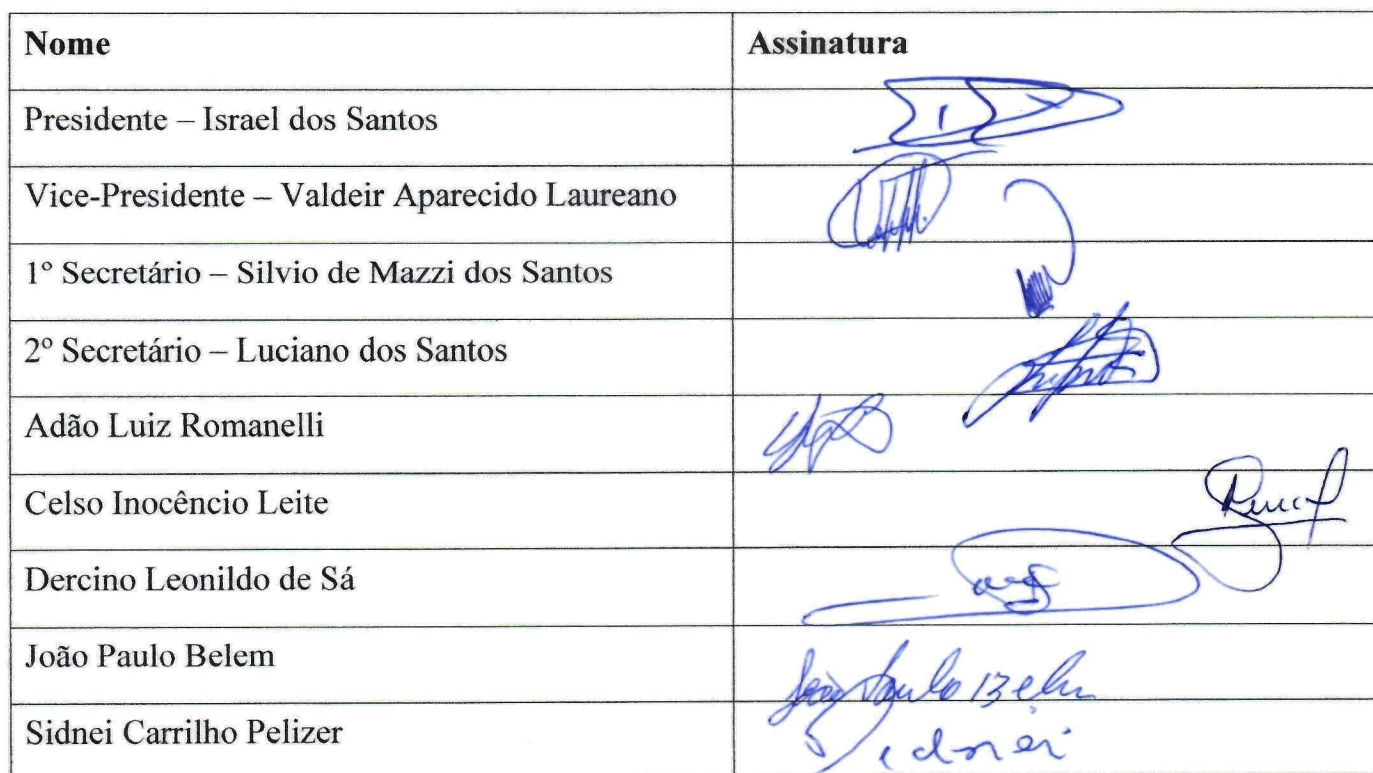 Nome Assinatura
Presidente – Israel dos Santos
Vice-Presidente – Valdeir Aparecido Laureano
1º Secretário – Silvio de Mazzi dos Santos
2º Secretário – Luciano dos Santos
Adão Luiz Romanelli
Celso Inocêncio Leite
Dercino Leonildo de Sá
João Paulo Belem João Paulo Belem
Sidnei Carrilho Pelizer Sidnei